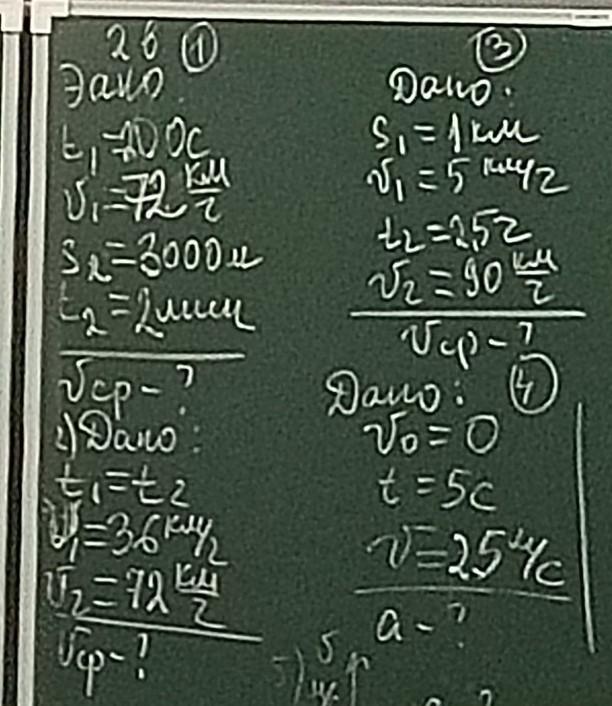 2в ①
Дано:
t₁=200с
v₁=72 км/г
s₂=3000м
t₂=2мин
vср-?
2) Дано:
t₁=t₂
v₁=36 км/г
v₂=72 км/г
vср-?
③
Дано:
s₁=1км
v₁=5 км/г
t₂=2,5г
v₂=90 км/г
vср-?
Дано: ④
v₀=0
t=5с
v=25 м/с
a-?
5)